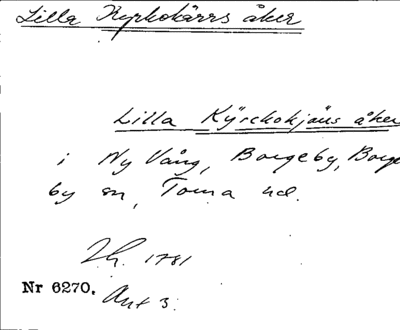 Lilla Kyrkokärrs åker
Lilla Kÿrckokjäus åker
i Ny Vång, Borgeby, Borge
by sn, Torna hd.
Lh. 1781
Nr 6270. Akt 3.